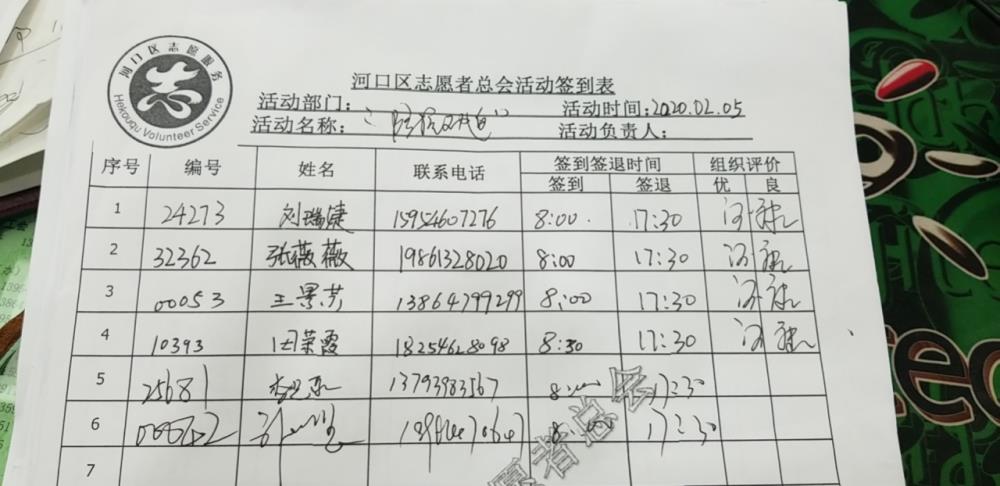 河口区志愿服务
志
Hekouqu Volunteer Service
河口区志愿者总会活动签到表
活动部门： 活动时间：2020.02.05
活动名称： 活动负责人：
序号 编号 姓名 联系电话 签到签退时间 组织评价
签到 签退 优 良
1 24273 刘瑞婕 15954607276 8:00 17:30
2 32362 张薇薇 19861328020 8:00 17:30
3 00053 王景芳 13864799299 8:00 17:30
4 10393 田荣霞 18254628098 8:30 17:30
5 25681 13793983567 8:00 17:30
6 8:00 17:30
7
愿者总会